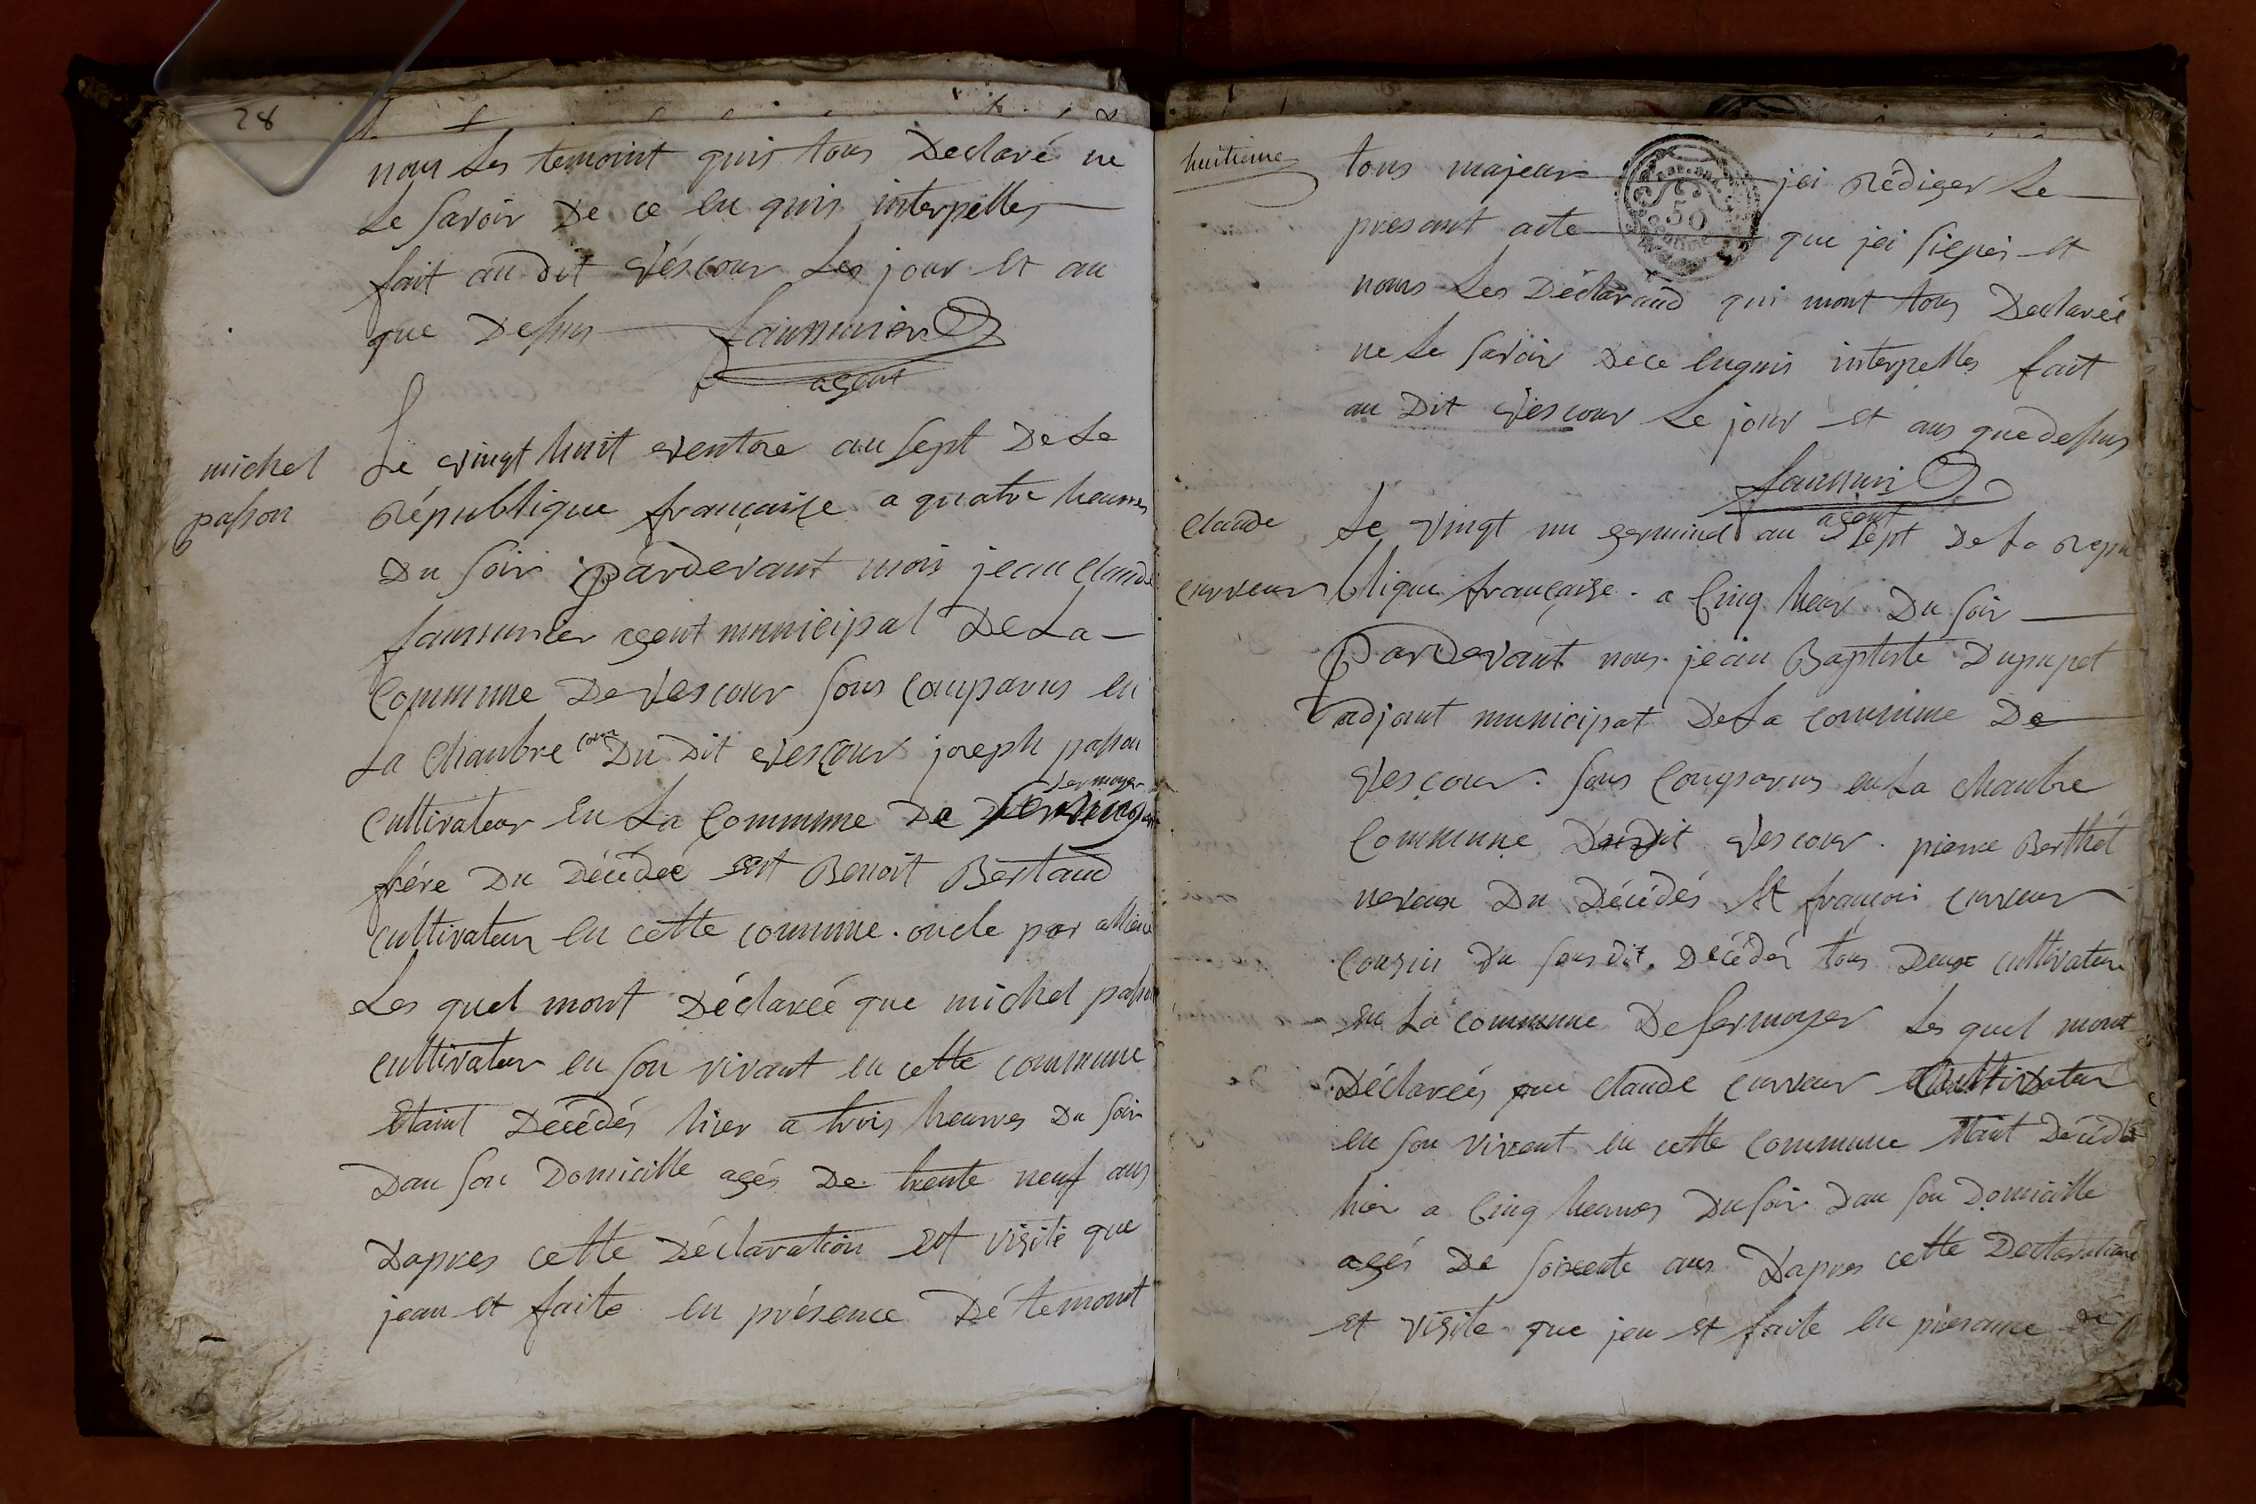 28
nous les temoint quis tous Declaré ne
Le savoir De ce en quis interpelles
fait au dit vescour Les jour et an
que Dessus faussurier
agent
michel
passon
Le vingt huit ventose an sept De Le
République française a quatre heures
Du soir pardevant mois jean claude
faussurier agent municipal De La
Commune De Vescour sons comparus en
La Chambre com Du Dit vescour joseph passon
Sermoyer
Cultivateur en La Commune De
frére Du Décédeé est Benoit Bertaud
cultivateur en cette commune. oncle par allience
Les quel mont Déclareé que michel passon
cultivateur en son vivant en cette commune
étaint Décédés hier a trois heures Du soir
Dan son Domicille agés De trente neuf ans
Dapres cette Déclaration est visite que
jeau et faite en présence Dé temoint
huitieme
tous majeur jei Rédiger Le
50
present acte que jei signés et
nous Les Déclaraud qui mont tous Declareé
ne Le savoir De ce enquis interpellés fait
au Dit vescour Le jour et ans que dessus
faussuri
agent
claude
curveur
Le vingt un germinal an sept De La repu
blique française. a Cinq heur Du soir
Pardevant nous jean Baptiste Dupupet
adjoint municipat De La commune De
vescour. sons Comparus en La chambre
Commune Dudit vescour. pierre Berthet
neveux Du Décédés et françois curveur
cousin Du sous dit. Décédér tous Deux cultivateur
en La commune De sermoyer Les quel mont
Déclareés que claude curveur Cultivateur
en son vivent en cette commune étaint Décédé
hier a Cinq heures Du soir Dan son Domicille
agés De soixente ans Dapres cette Declaration
et visite que jeu et faite en présance de